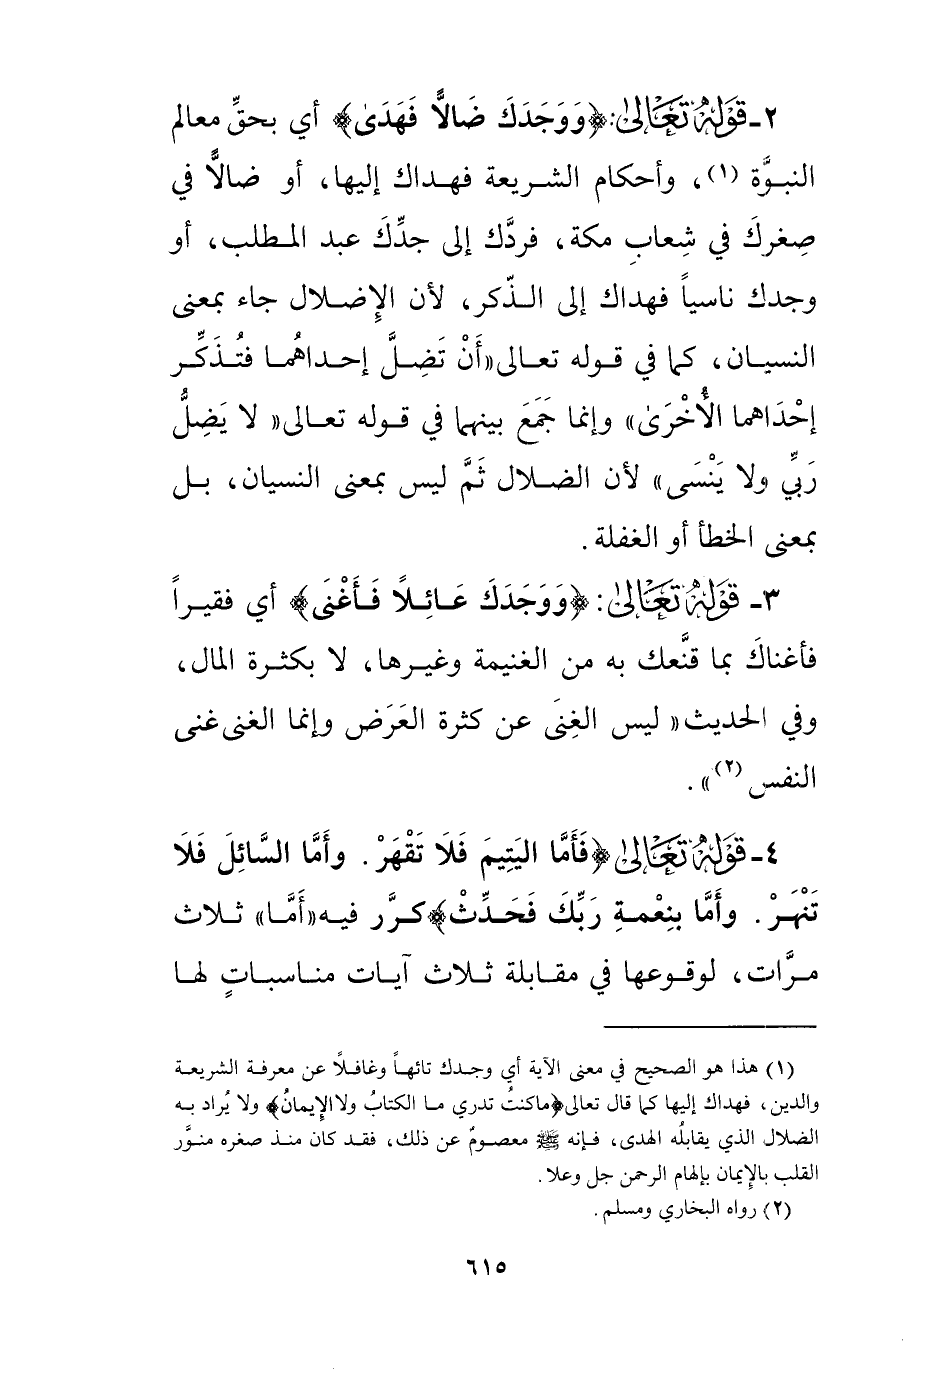 ٢ـ قَوْلُهُ تَعَالَىٰ: ﴿وَوَجَدَكَ ضَالًّا فَهَدَىٰ﴾ أي بحقِّ معالم
النبوَّة (١)، وأحكام الشريعة فهداك إليها، أو ضالًّا في
صِغركَ في شِعابِ مكة، فردَّك إلى جدِّكَ عبد المطلب، أو
وجدك ناسياً فهداك إلى الذّكر، لأن الإِضلال جاء بمعنى
النسيان، كما في قوله تعالى«أَنْ تَضِلَّ إحداهُما فتُذَكِّر
إحْدَاهما الأُخْرَىٰ» وإنما جَمَعَ بينهما في قوله تعالى« لا يَضِلُّ
رَبِّي ولا يَنْسَى» لأن الضلال ثَمَّ ليس بمعنى النسيان، بل
بمعنى الخطأ أو الغفلة.
٣ـ قَوْلُهُ تَعَالَىٰ: ﴿وَوَجَدَكَ عَائِلاً فَأَغْنَى﴾ أي فقيراً
فأغناكَ بما قنَّعك به من الغنيمة وغيرها، لا بكثرة المال،
وفي الحديث« ليس الغِنَى عن كثرة العَرَض وإنما الغنى غنى
النفس (٢)».
٤ـ قَوْلُهُ تَعَالَىٰ ﴿فَأَمَّا اليَتِيمَ فَلَا تَقْهَرْ. وأَمَّا السَّائِلَ فَلَا
تَنْهَرْ. وأَمَّا بِنِعْمةِ رَبِّكَ فَحَدِّثْ﴾ كرَّر فيه«أَمَّا» ثلاث
مرَّات، لوقوعها في مقابلة ثلاث آيات مناسباتٍ لها
(١) هذا هو الصحيح في معنى الآية أي وجدك تائهاً وغافلاً عن معرفة الشريعة
والدين، فهداك إليها كما قال تعالى﴿ماكنتُ تدري ما الكتابُ ولاالإِيمانُ﴾ ولا يُراد به
الضلال الذي يقابلُه الهدى، فإنه ﷺ معصومٌ عن ذلك، فقد كان منذ صغره منوَّر
القلب بالإِيمان بإلهام الرحمن جل وعلا.
(٢) رواه البخاري ومسلم.
٦١٥